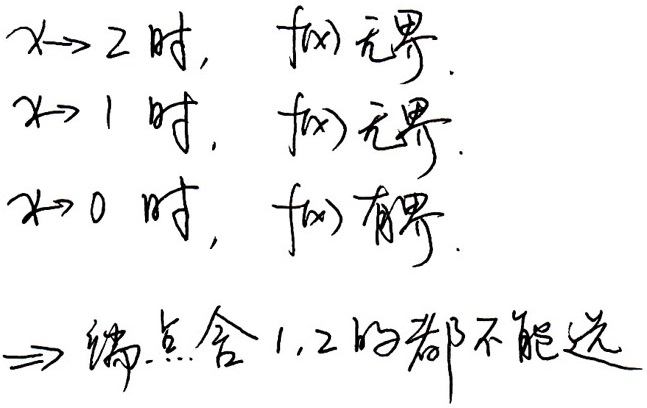 x→2时, f(x)无界.
x→1时, f(x)无界.
x→0时, f(x)有界.
⇒ 端点含1,2的都不能选